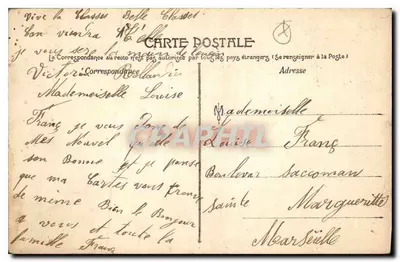 Vive la Classes Belle Classes
bon viendra
je vous sere la main de
CARTE POSTALE
La Correspondance au recto n'est pas autorisée par tous les pays étrangers (Se renseigner à la Poste)
Correspondance
Adresse
Victoria
Mademoiselle Louise
Franç je vous
Mes Nouvel
son Bonne et je pense
que ma Cartes vous
de meime Bien le Bonjour
a vous et toute la
famille Franç
Mademoiselle
Louise Franç
Boulevar saccoman
sainte Margueritte
Marséille